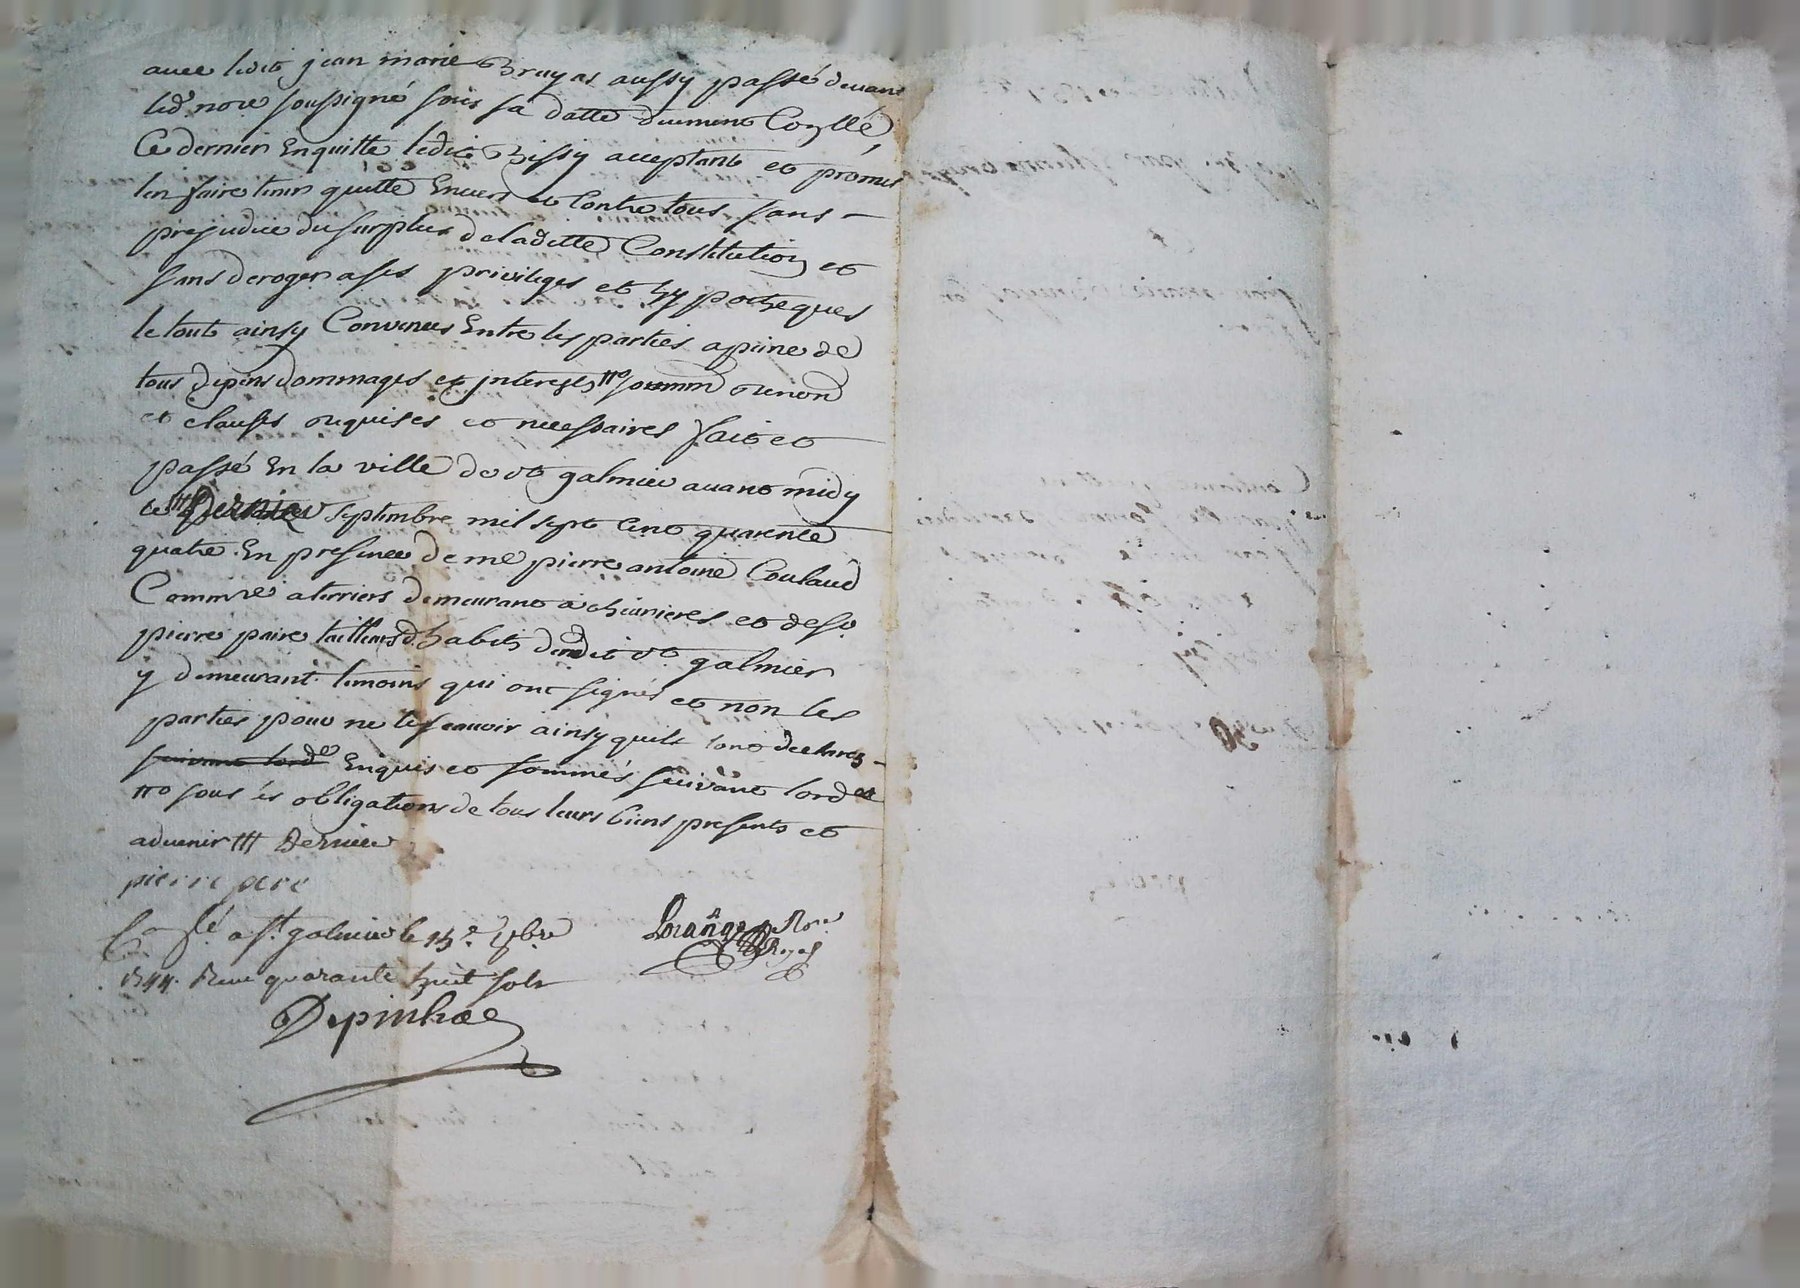 avec ledit jean marie Bruyas aussy passé devant
led. nore soussigné sous sa datte duement Coñllé
Ce dernier En quitte ledit Bissy acceptant et promet
len faire tenir quitte Envers et Contre tous sans –
prejudice du surplus de laditte Constitution et
sans deroger a ses privileges et hypotheques
le tout ainsy Convenus Entre les parties a peine de
tous depens dommages et interests #o soumm renond
et clauses requises et necessaires fait et
passé En la ville de st galmier avant midy
le /// septembre mil sept cent quarente
quatre En presence de me pierre antoine Coulaud
Commre a terriers demeurant a chevrieres et de sr
pierre paire tailleur d'habits dudit st galmier
y demeurant temoins qui ont signés et non les
parties pour ne le scavoir ainsy quils lont declarés –
suivant lordce Enquis et sommés suivant lordce
#o sous les obligations de tous leurs biens presents et
advenir /// Dernier
pierre pere
Coñllé a st galmier le 13e 7bre
1744. Reçu quarante huit sols
Lorange Nore
Royal
Depinhac
30